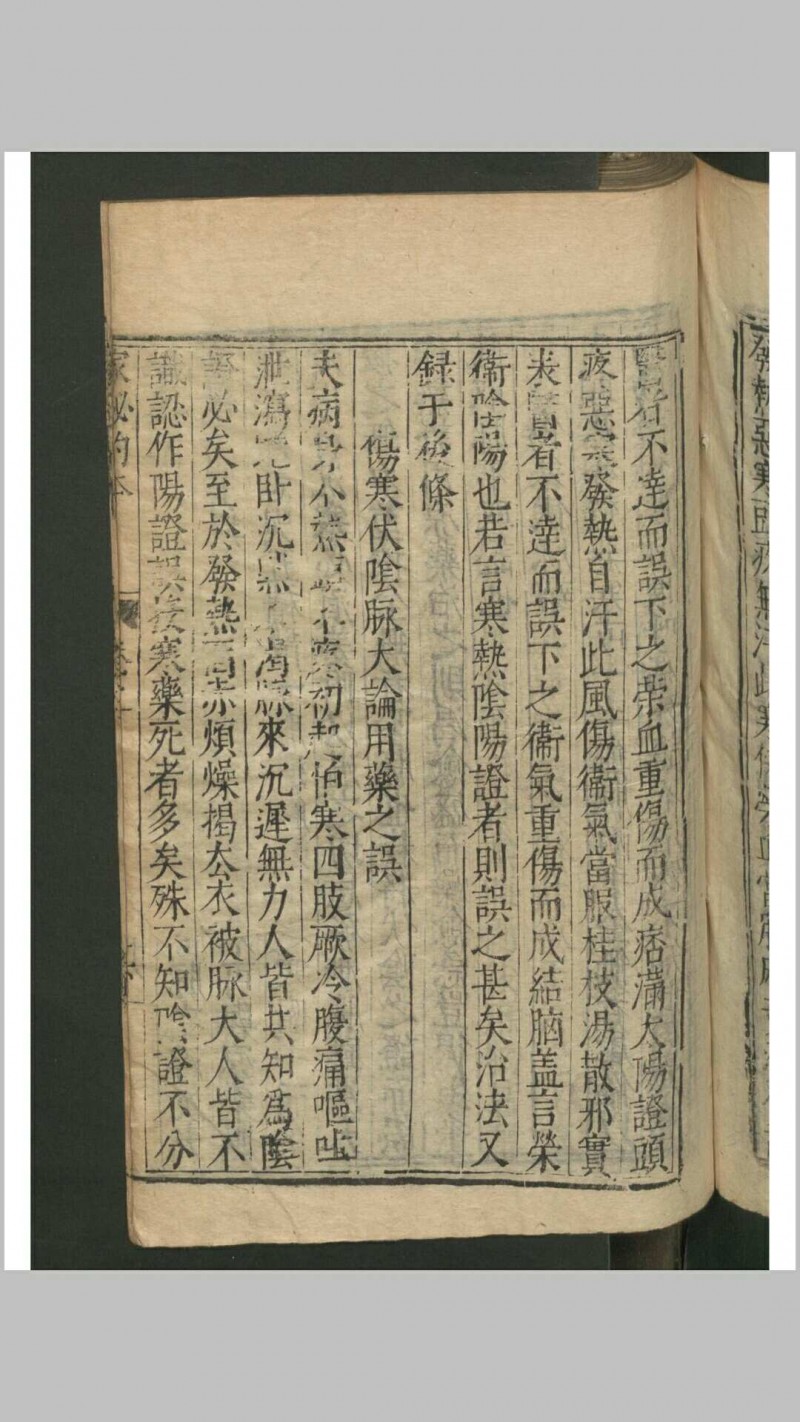 發熱惡寒頭疼無汗此寒傷榮血當服麻
醫者不達而誤下之榮血重傷而成痞滿太陽證頭
疼惡寒發熱自汗此風傷衞氣當服桂枝湯散邪實
表醫者不達而誤下之衞氣重傷而成結胸盖言榮
衞陰陽也若言寒熱陰陽證者則誤之甚矣治法又
録于後條
傷寒伏陰脉大論用藥之誤
夫病身不熱頭不疼初起怕寒四肢厥冷腹痛嘔吐
泄瀉 卧沉 不渴脉來沉遲無力人皆共知爲陰
證必矣至於發熱面赤煩燥揭去衣被脉大人皆不
識認作陽證誤投寒藥死者多矣殊不知陰證不分
家秘的本